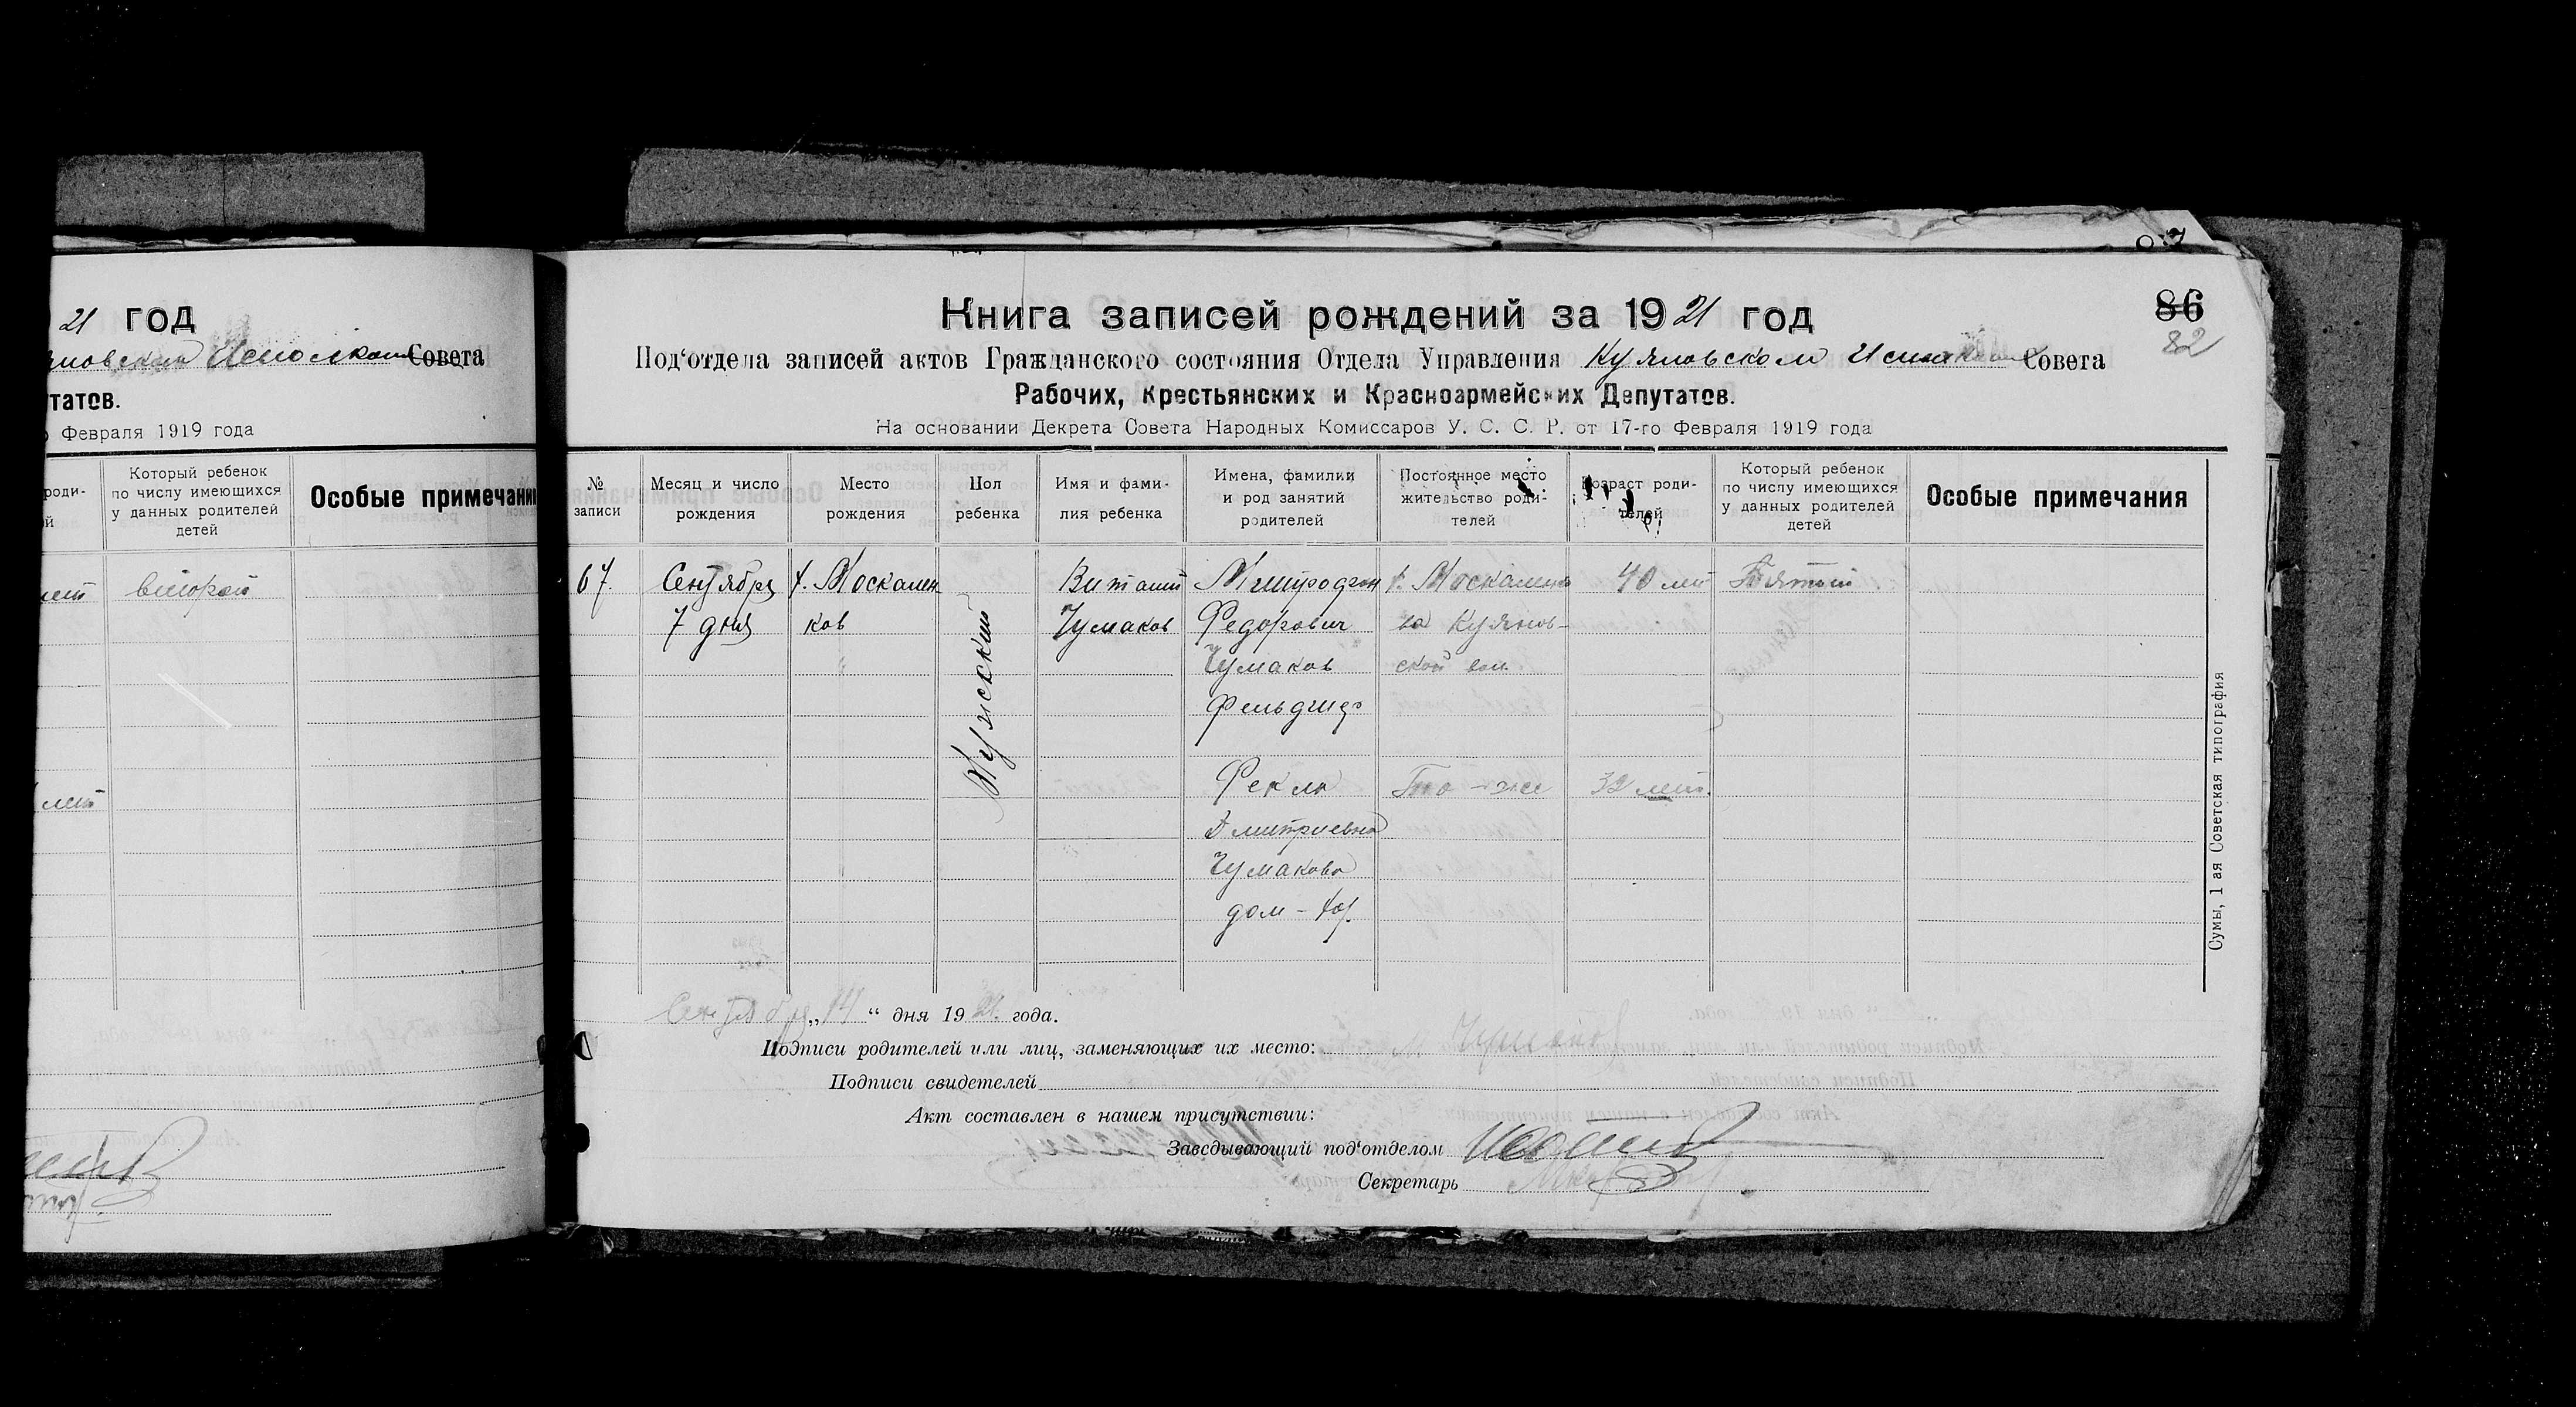 21 год
Совета
татов.
Февраля 1919 года
роди-
Который ребенок
по числу имеющихся
у данных родителей
детей
Особые примечани
второй
лет
86
82
Книга записей рождений за 1921 год
Под'отдела записей актов Гражданского состояния Отдела Управления Куяновском Совета
Рабочих, Крестьянских и Красноармейских Депутатов.
На основании Декрета Совета Народных Комиссаров У. С. С. Р. от 17-го Февраля 1919 года
№
записи
Месяц и число
рождения
Место
рождения
Пол
ребенка
Имя и фами-
лия ребенка
Имена, фамилии
и род занятий
родителей
Постоянное место
жительство роди-
телей
Возраст роди-
телей
Который ребенок
по числу имеющихся
у данных родителей
детей
Особые примечания
67.
Сентября
7 дня
х. Москален
ков
Мужский
Виталий
Чумаков
Митрофан
Федорович
Чумаков
Фельдшер
Фекла
Дмитриевна
Чумакова
дом-хоз.
х. Москаленко
ва Куянов-
ской вол.
То-же
40 лет
32 лет.
Пятый
Сентября „14“ дня 1921. года.
Подписи родителей или лиц, заменяющих их место: М. Чумаков
Подписи свидетелей
Акт составлен в нашем присутствии:
Заведывающий под'отделом
Секретарь
Сумы, 1 ая Советская типография